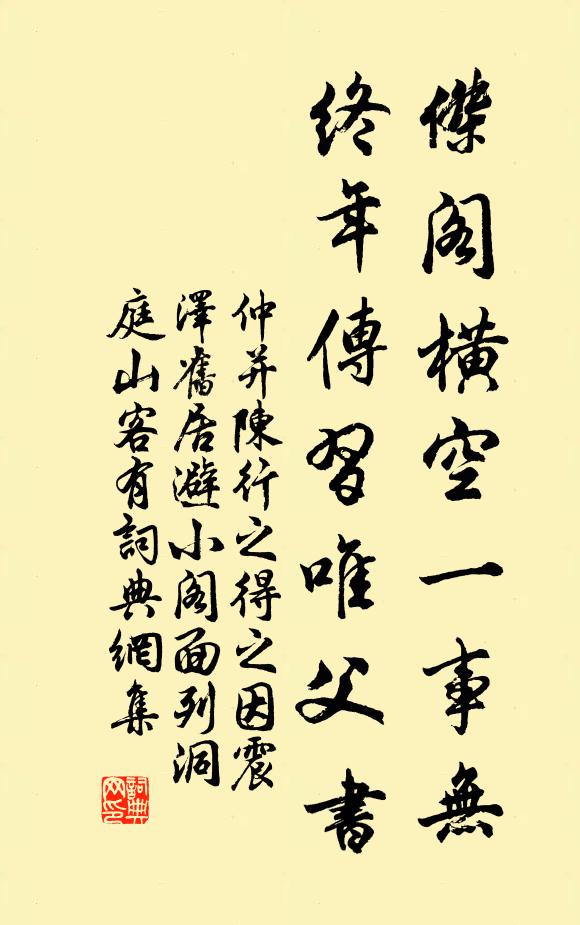 傑阁橫空一事無
終年傳習唯父書
仲并陳行之得之因震
澤舊居避小阁面列洞
庭山客有詞典網集
詞典网印